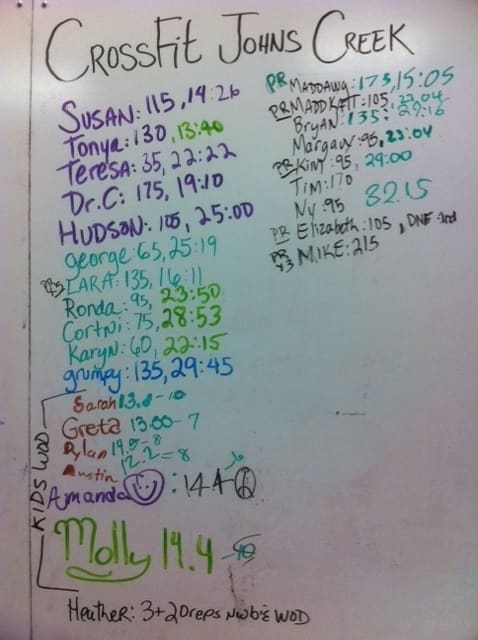 CROSSFIT JOHNS CREEK
SUSAN: 115, 14:26
Tonya: 130, 13:40
Teresa: 35, 22:22
Dr.C: 175, 19:10
HUDSON: 105, 25:00
george: 65, 25:19
LARA: 135, 16:11
Ronda: 95, 23:50
Cortni: 75, 28:53
Karyn: 60, 22:15
grumpy: 135, 29:45
PR MADDAWG: 175, 15:05
PR MADDKATT: 105, 23:04
BRYAN: 135: 29:16
Margaux: 95, 23:04
PR Kim: 95, 29:00
Tim: 170
Ny: 95 32:15
PR Elizabeth: 105, DNF
PR x3 MIKE: 215
KIDS WOD
Sarah 13.8-10
Greta 13.00-7
Dylan 19.5-8
Austin 12.2=8
Amanda : 14.4-
Molly 14.4
Heather: 3+20reps WOD